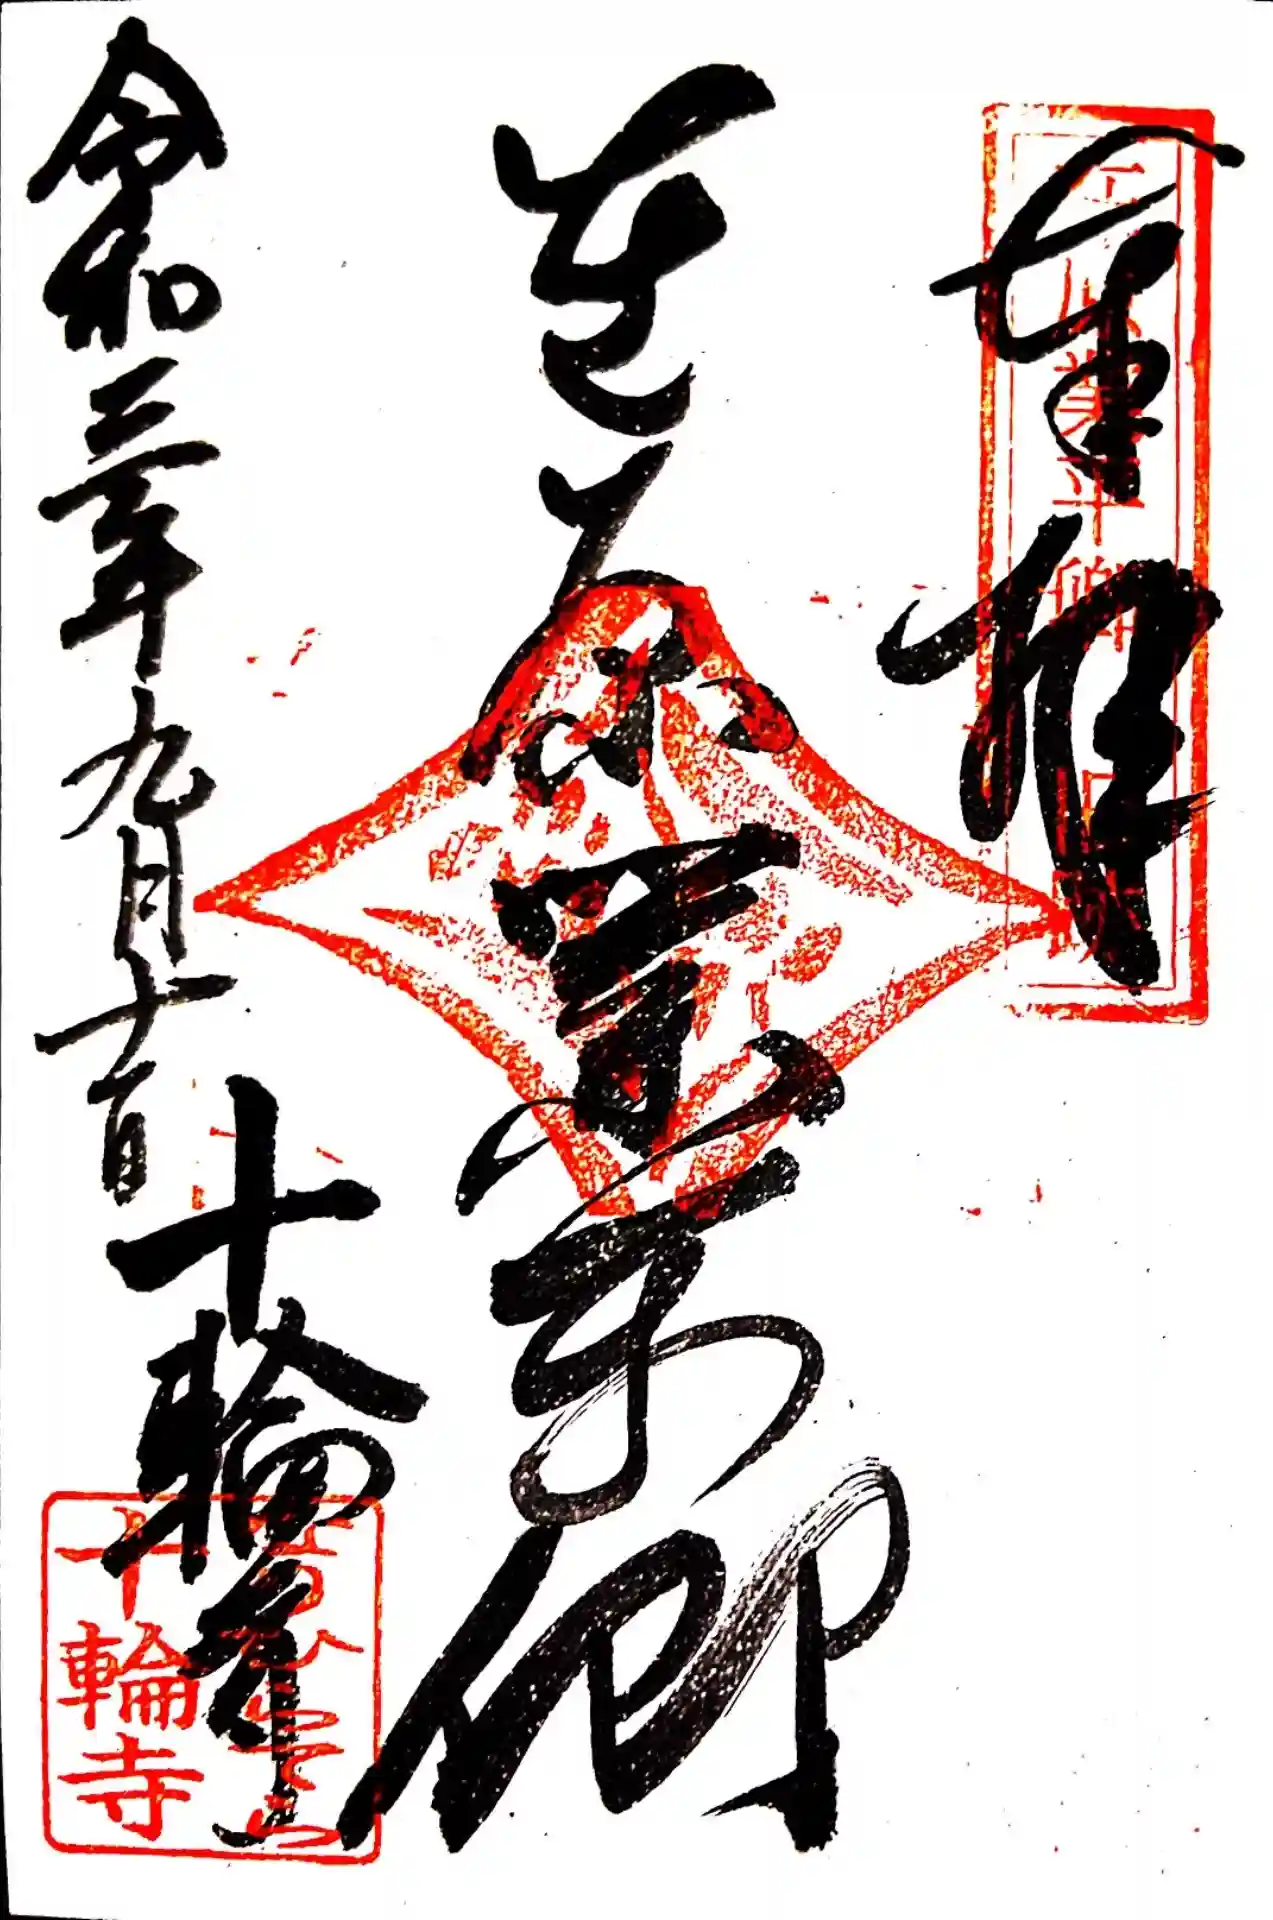 奉拝
在原業平卿
令和三年九月十一日
十輪寺
十輪寺